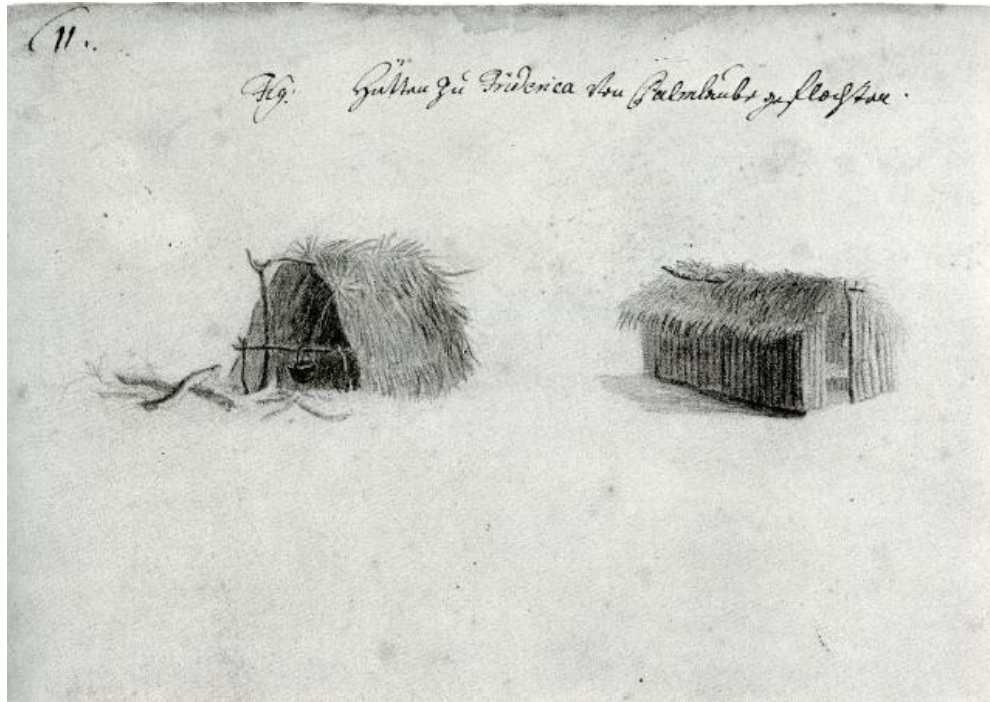 11.
Fig: Hütten zu Friderica von Palmlaube geflochten.